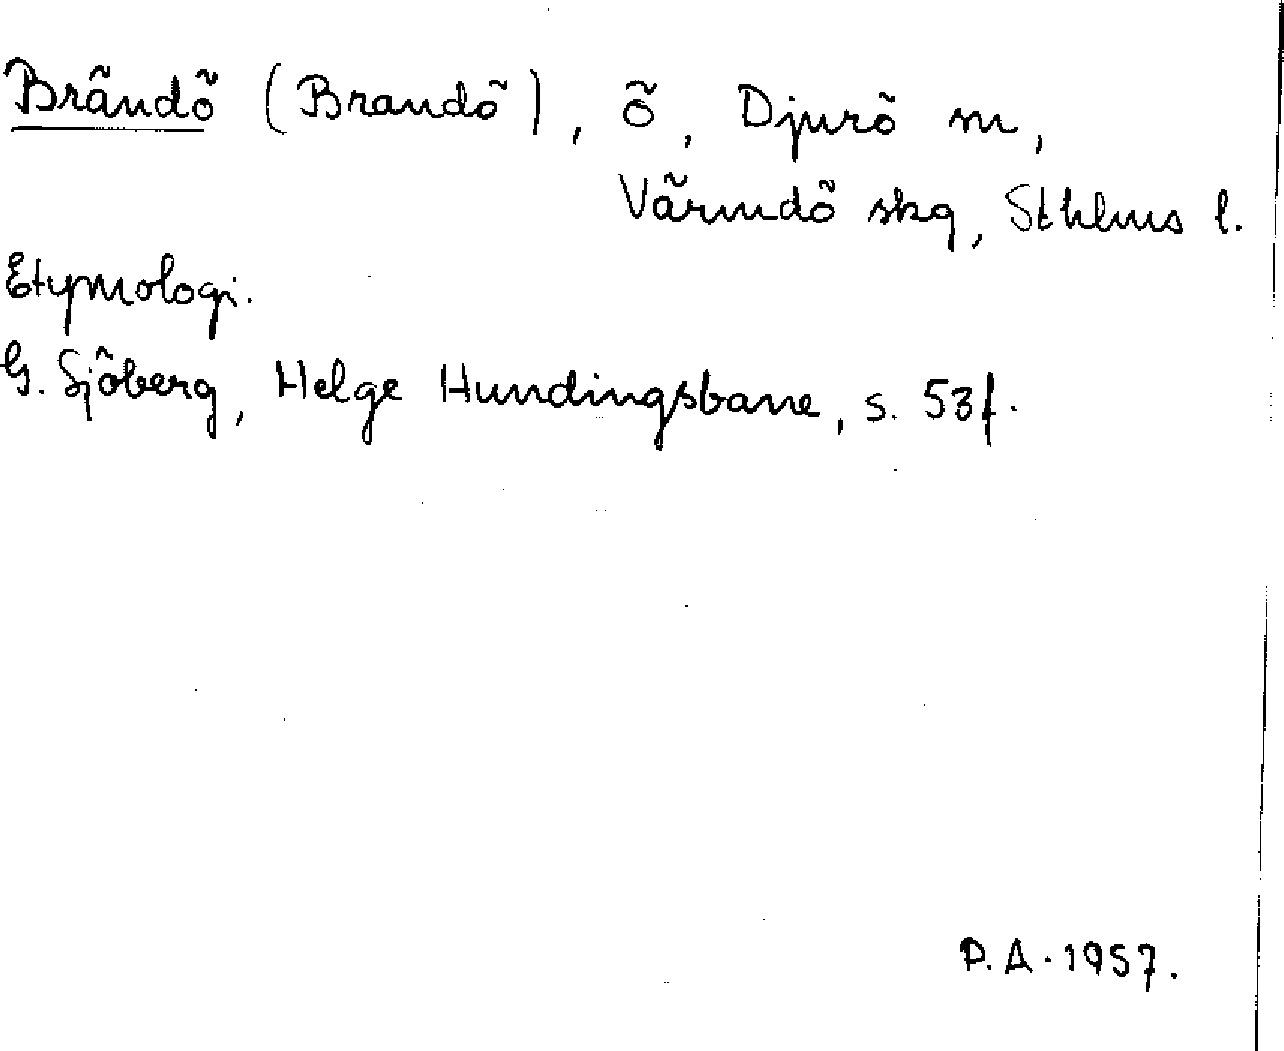 Brändö (Brandö), ö, Djurö sn,
Värmdö skg, Sthlms l.
Etymologi.
G. Sjöberg, Helge Hundingsbane, s. 53f.
P.A. 1957.